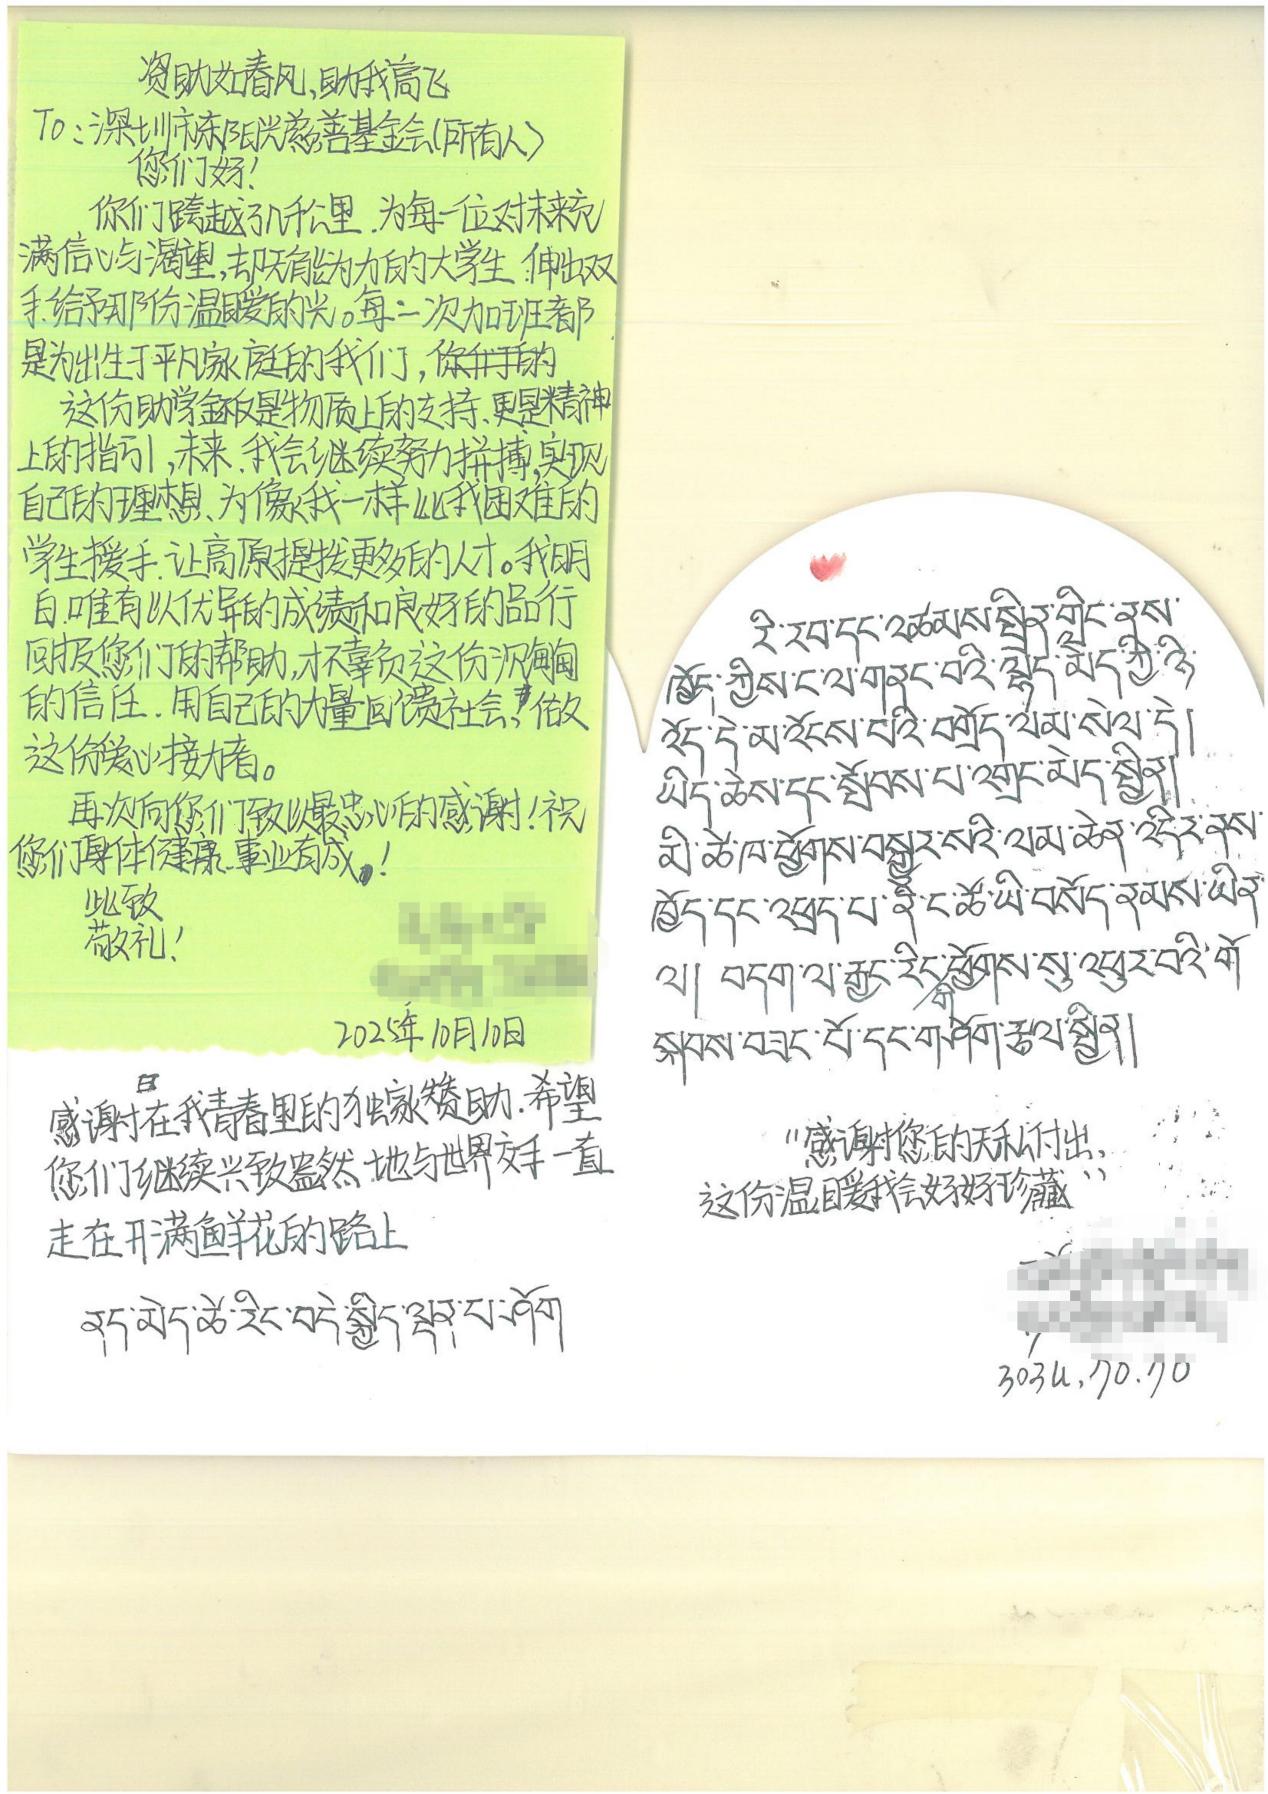 资助如春风,助我高飞
To:深圳市东阳光慈善基金会(所有人)
您们好!
你们跨越了几千公里.为每一位对未来充
满信心与渴望,却无能为力的大学生.伸出双
手.给予那份温暖的光。每一次加班都
是为出生于平凡家庭的我们,
这份助学金不仅是物质上的支持、更是精神
上的指引,未来.我会继续努力拼搏,实现
自己的理想、为像我一样 比我困难的
学生援手.让高原提拔更多的人才。我明
白.唯有以优异的成绩和良好的品行
回报您们的帮助,才不辜负这份沉甸甸
的信任.用自己的力量回馈社会,做
这份爱心接力者。
再次向您们致以最忠心的感谢!祝
您们身体健康.事业有成!
此致
敬礼!
2025年10月10日
感谢在我青春里的独家赞助.希望
您们继续兴致盎然地与世界交手一直
走在开满鲜花的路上
ནད་མེད་ཚེ་རིང་བདེ་སྐྱིད་ལྡན་པ་ཤོག
རི་རབ་དང་འཚམས་སྤྲིན་གླིང་ནས་
ཁྱོད་ཀྱིས་ང་ལ་གནང་བའི་
འོད་དེ་མ་འོངས་པའི་བགྲོད་ལམ་སེལ་དེ།
ཡིད་ཆེས་དང་སྤོབས་པ་འགྲང་མེད་སྤྱིན།
མི་ཚེ་ཁ་ཕྱོགས་བསྒྱུར་སའི་ལམ་ཆེན་འདིར་ནས་
ཁྱོད་དང་འཕྲད་པ་ནི་ང་ཚོ་ཡི་བསོད་ནམས་ཡིན་
ལ། བདག་ལ་རྒྱང་རིང་ཕྱོགས་སུ་འཕུར་བའི་གོ
སྐབས་བཟང་པོ་དང་གཤོག་རྩལ་སྤྱིན།
“感谢您的无私付出,
这份温暖我会好好珍藏”
༢༠༢༥.༡༠.༡༠